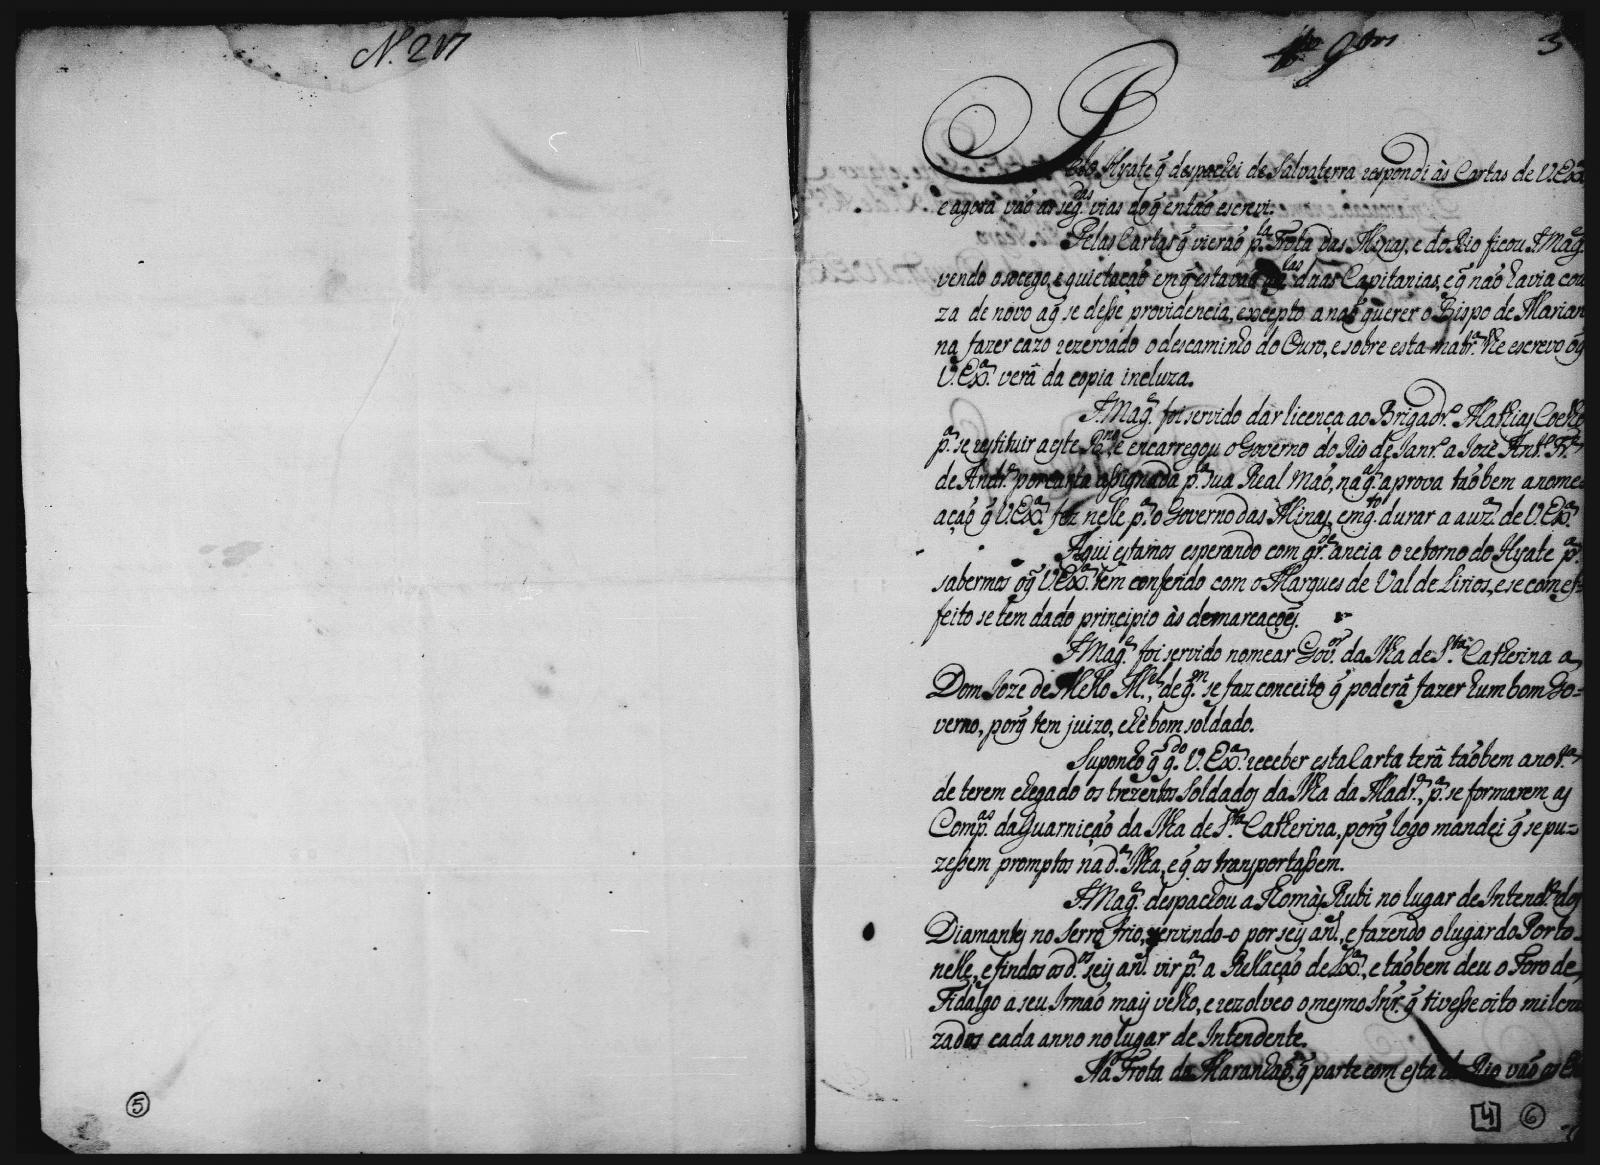 N. 217
3
Pelo Hyate q̃ despachei de Salvaterra respondi às Cartas de V. Exª
e agora vão as seg.das vias do q̃ então escrevi.
Pelas Cartas q̃ vierão p.la Frota das Minas, e do Rio ficou S. Mag.e
vendo o socego, e quietação em q̃ estavão daas Capitanias, e q̃ não havia cou
za de novo a q̃ se desse providencia, excepto a não querer o Bispo de Marian
na fazer cazo rezervado o descaminho do Ouro, e sobre esta matr.ª lhe escrevo o q̃
V. Ex.ª verá da copia incluza.
S. Mag.e foi servido dar licença ao Brigadr.º Mathias Coelho
p.ª se restituir a este R.no e encarregou o Governo do Rio de Janr.º a Jozè Ant.º Fr.e
de Andr.e por carta assignada p.la sua Real Mão, na q.ª aprova tãobem a nome=
ação q̃ V. Ex.ª fez nelle p.ª o Governo das Minas, em q.to durar a auz.ª de V. Ex.ª
Aqui estamos esperando com gr.de ancia o retorno do Hyate p.ª
sabermos o q̃ V. Ex.ª tem conferido com o Marques de Val de Lirios, e se com ef=
feito se tem dado principio às demarcações.
S. Mag.e foi servido nomear Gov.or da Ilha de S.ta Catherina a
Dom Joze de Mello M.el, de q.m se faz conceito q̃ poderá fazer hum bom Go=
verno, porq̃ tem juizo, e hè bom soldado.
Suponho q̃ q.do V. Ex.ª receber esta Carta terá tãobem a not.ª
de terem chegado os trezentos Soldados da Ilha da Madr.ª, p.ª se formarem as
Comp.as da Guarnição da Ilha de S.ta Catherina, porq̃ logo mandei q̃ se pu=
zessem promptos na d.ª Ilha, e q̃ os transportassem.
S. Mag.e despachou a Thomàs Rubi no lugar de Intend.e dos
Diamantes no Serro frio, servindo-o por seis an.s, e fazendo o lugar do Porto
nelle, e findos os d.os seis an.s vir p.ª a Rellação de Lx.ª, e tãobem deu o Foro de
Fidalgo a seu Irmão mais velho, e rezolveo o mesmo Snr. q̃ tivesse oito mil cru
zados cada anno no lugar de Intendente.
Na Frota do Maranhão, q̃ parte com esta do Rio vão os
5
4
6